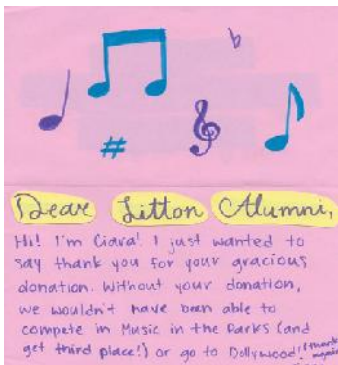 Dear Litton Alumni,
Hi! I'm Ciara! I just wanted to
say thank you for your gracious
donation. Without your donation,
we wouldn't have been able to
compete in Music in the Parks (and
get third place!) or go to Dollywood!